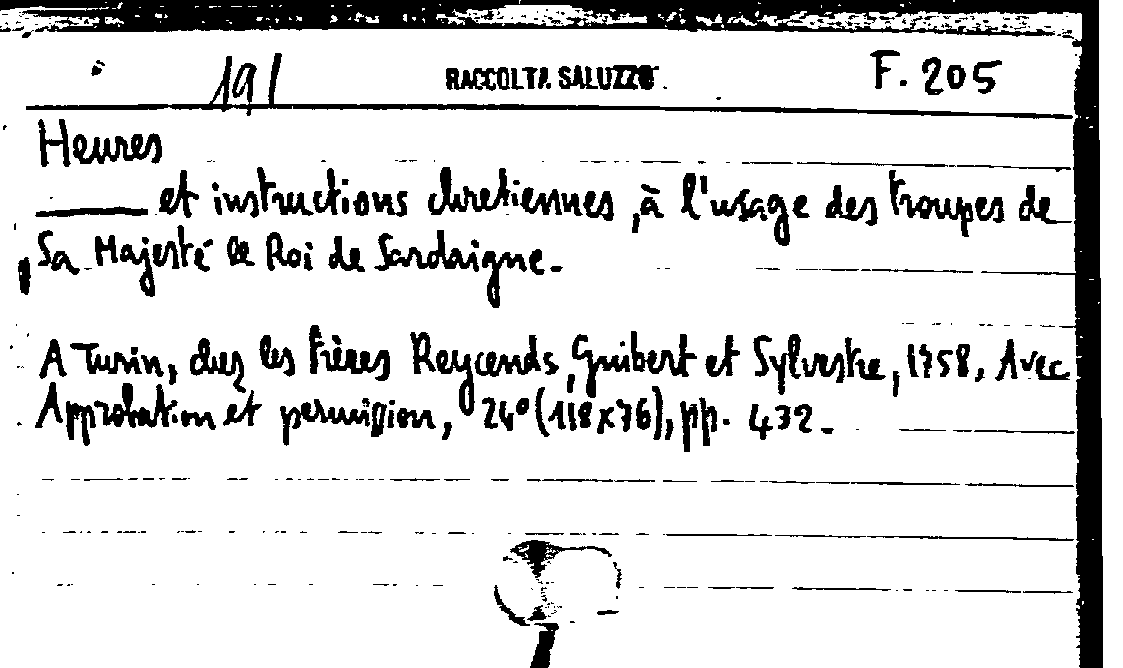 191 RACCOLTA SALUZZO. F. 205
Heures
_____ et instructions chretiennes, à l'usage des troupes de
Sa Majesté le Roi de Sardaigne.
A Turin, chez les Frères Reycends, Guibert et Sylvestre, 1758, Avec
Approbation et permission, 24° (118x76), pp. 432.